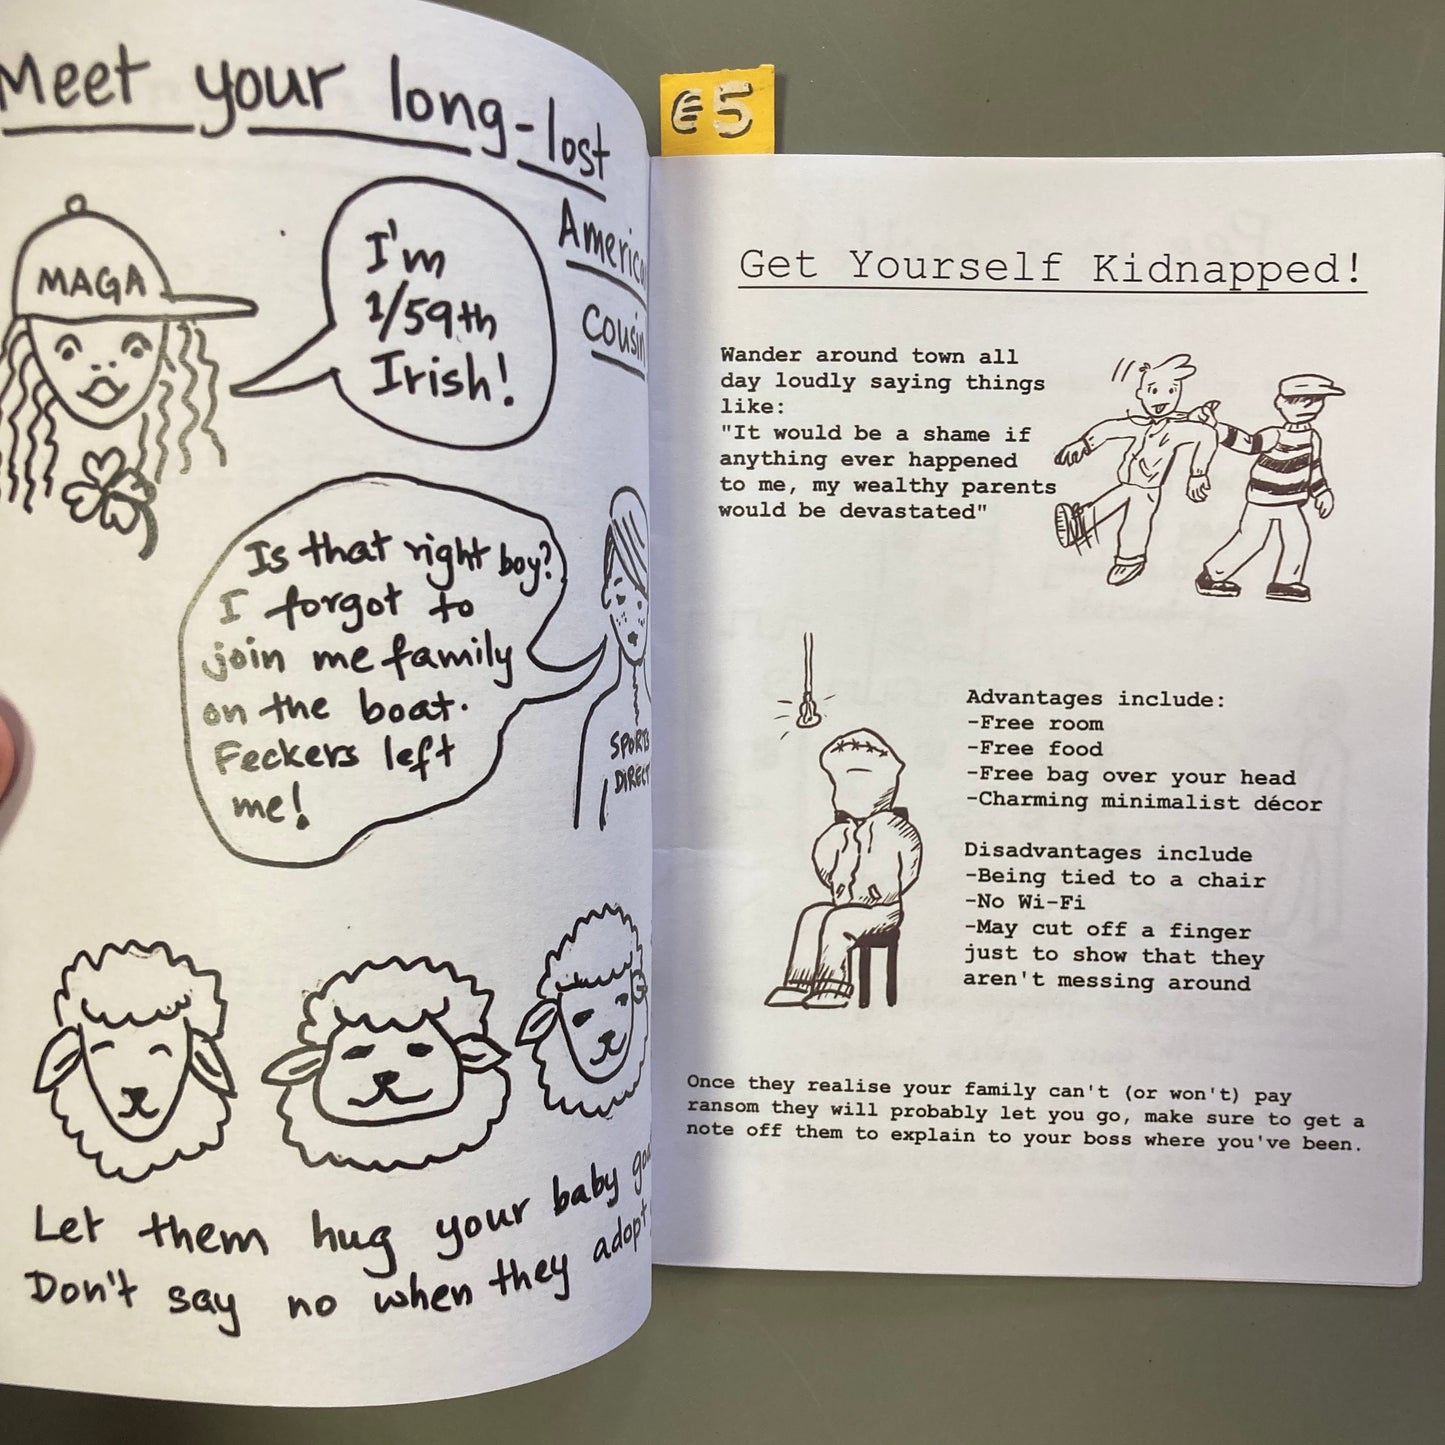 Meet your long-lost
American
Cousin
MAGA
I'm
1/59th
Irish!
Is that right boy?
I forgot to
join me family
on the boat.
Feckers left
me!
SPORTS
DIRECT
Let them hug your baby
Don't say no when they adopt
€5
Get Yourself Kidnapped!
Wander around town all
day loudly saying things
like:
"It would be a shame if
anything ever happened
to me, my wealthy parents
would be devastated"
Advantages include:
-Free room
-Free food
-Free bag over your head
-Charming minimalist décor
Disadvantages include
-Being tied to a chair
-No Wi-Fi
-May cut off a finger
just to show that they
aren't messing around
Once they realise your family can't (or won't) pay
ransom they will probably let you go, make sure to get a
note off them to explain to your boss where you've been.